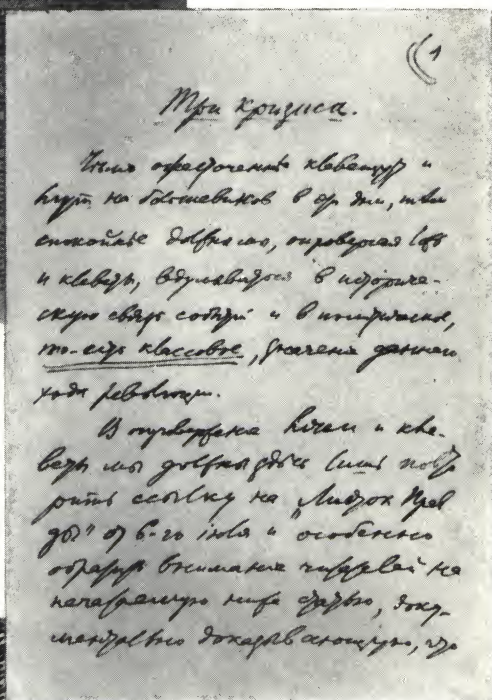 1
Три кризиса.
Чем ожесточеннее клевещут и
лгут на большевиков в эти дни, тем
спокойнее должны мы, опровергая ложь
и клевету, вдумываться в историче-
скую связь событий и в политическое,
то-есть классовое, значение данного
хода революции.
В опровержение лжи и кле-
веты мы должны здесь лишь повто
рить ссылку на „Листок Прав
ды" от 6-го июля и особенно
обратить внимание читателей на
печатаемую ниже статью, доку-
ментально доказывающую, что